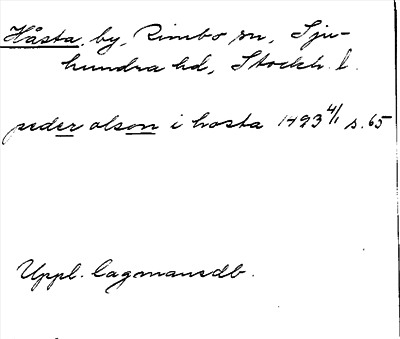 Håsta, by, Rimbo sn, Sju-
hundra hd, Stockh. l.
peder olson i hosta 1493 4/1 s. 65
Uppl. Lagmansdb.